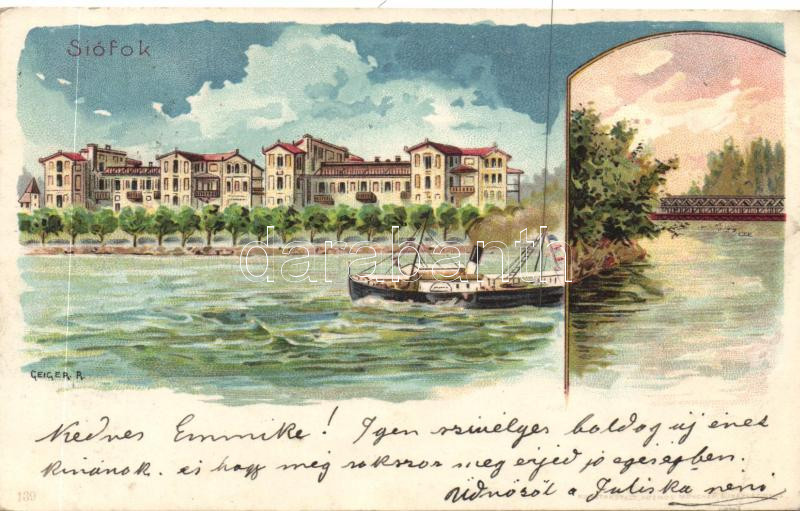 Siófok
darabanth
GEIGER R.
Kedves Emmike! Igen szivélyes boldog új évet
kivánok. és hogy még sokszor meg érjed jó egeségben.
üdvözöl a Juliska néni
139